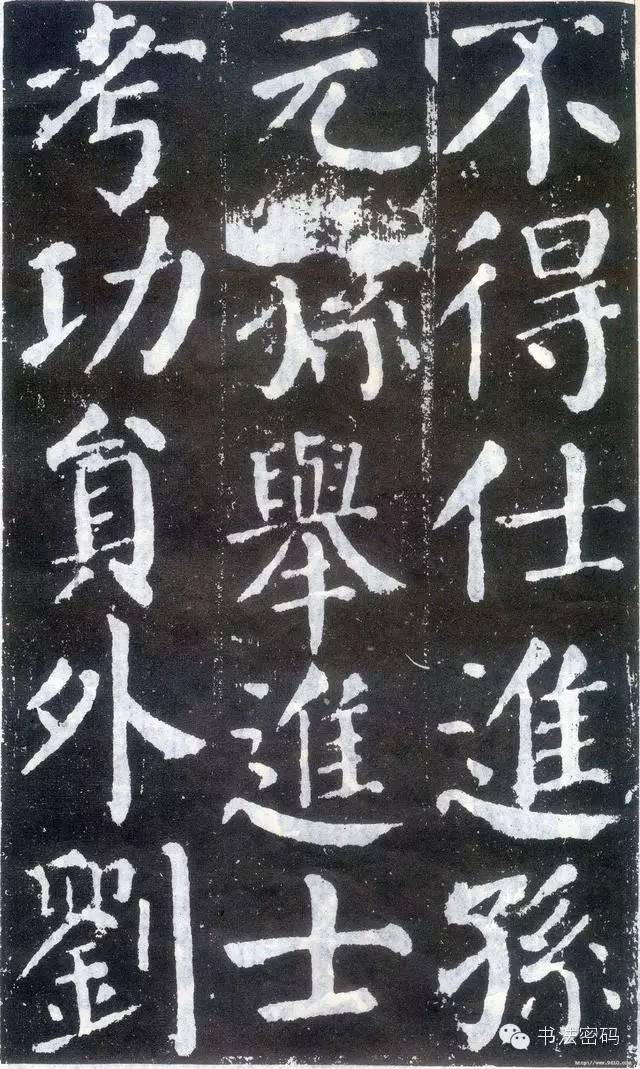 不得仕進孫
元孫舉進士
考功員外劉
书法密码
http://www.9610.com